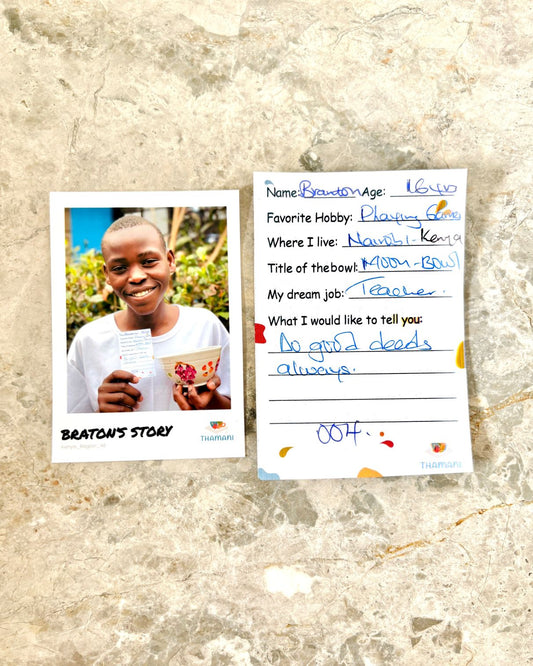 BRATON'S STORY
THAMANI
Name: Branton Age: 16 yrs
Favorite Hobby: Playing Games
Where I live: Nairobi - Kenya
Title of the bowl: Moon-Bowl
My dream job: Teacher.
What I would like to tell you:
Do good deeds
always.
004.
THAMANI